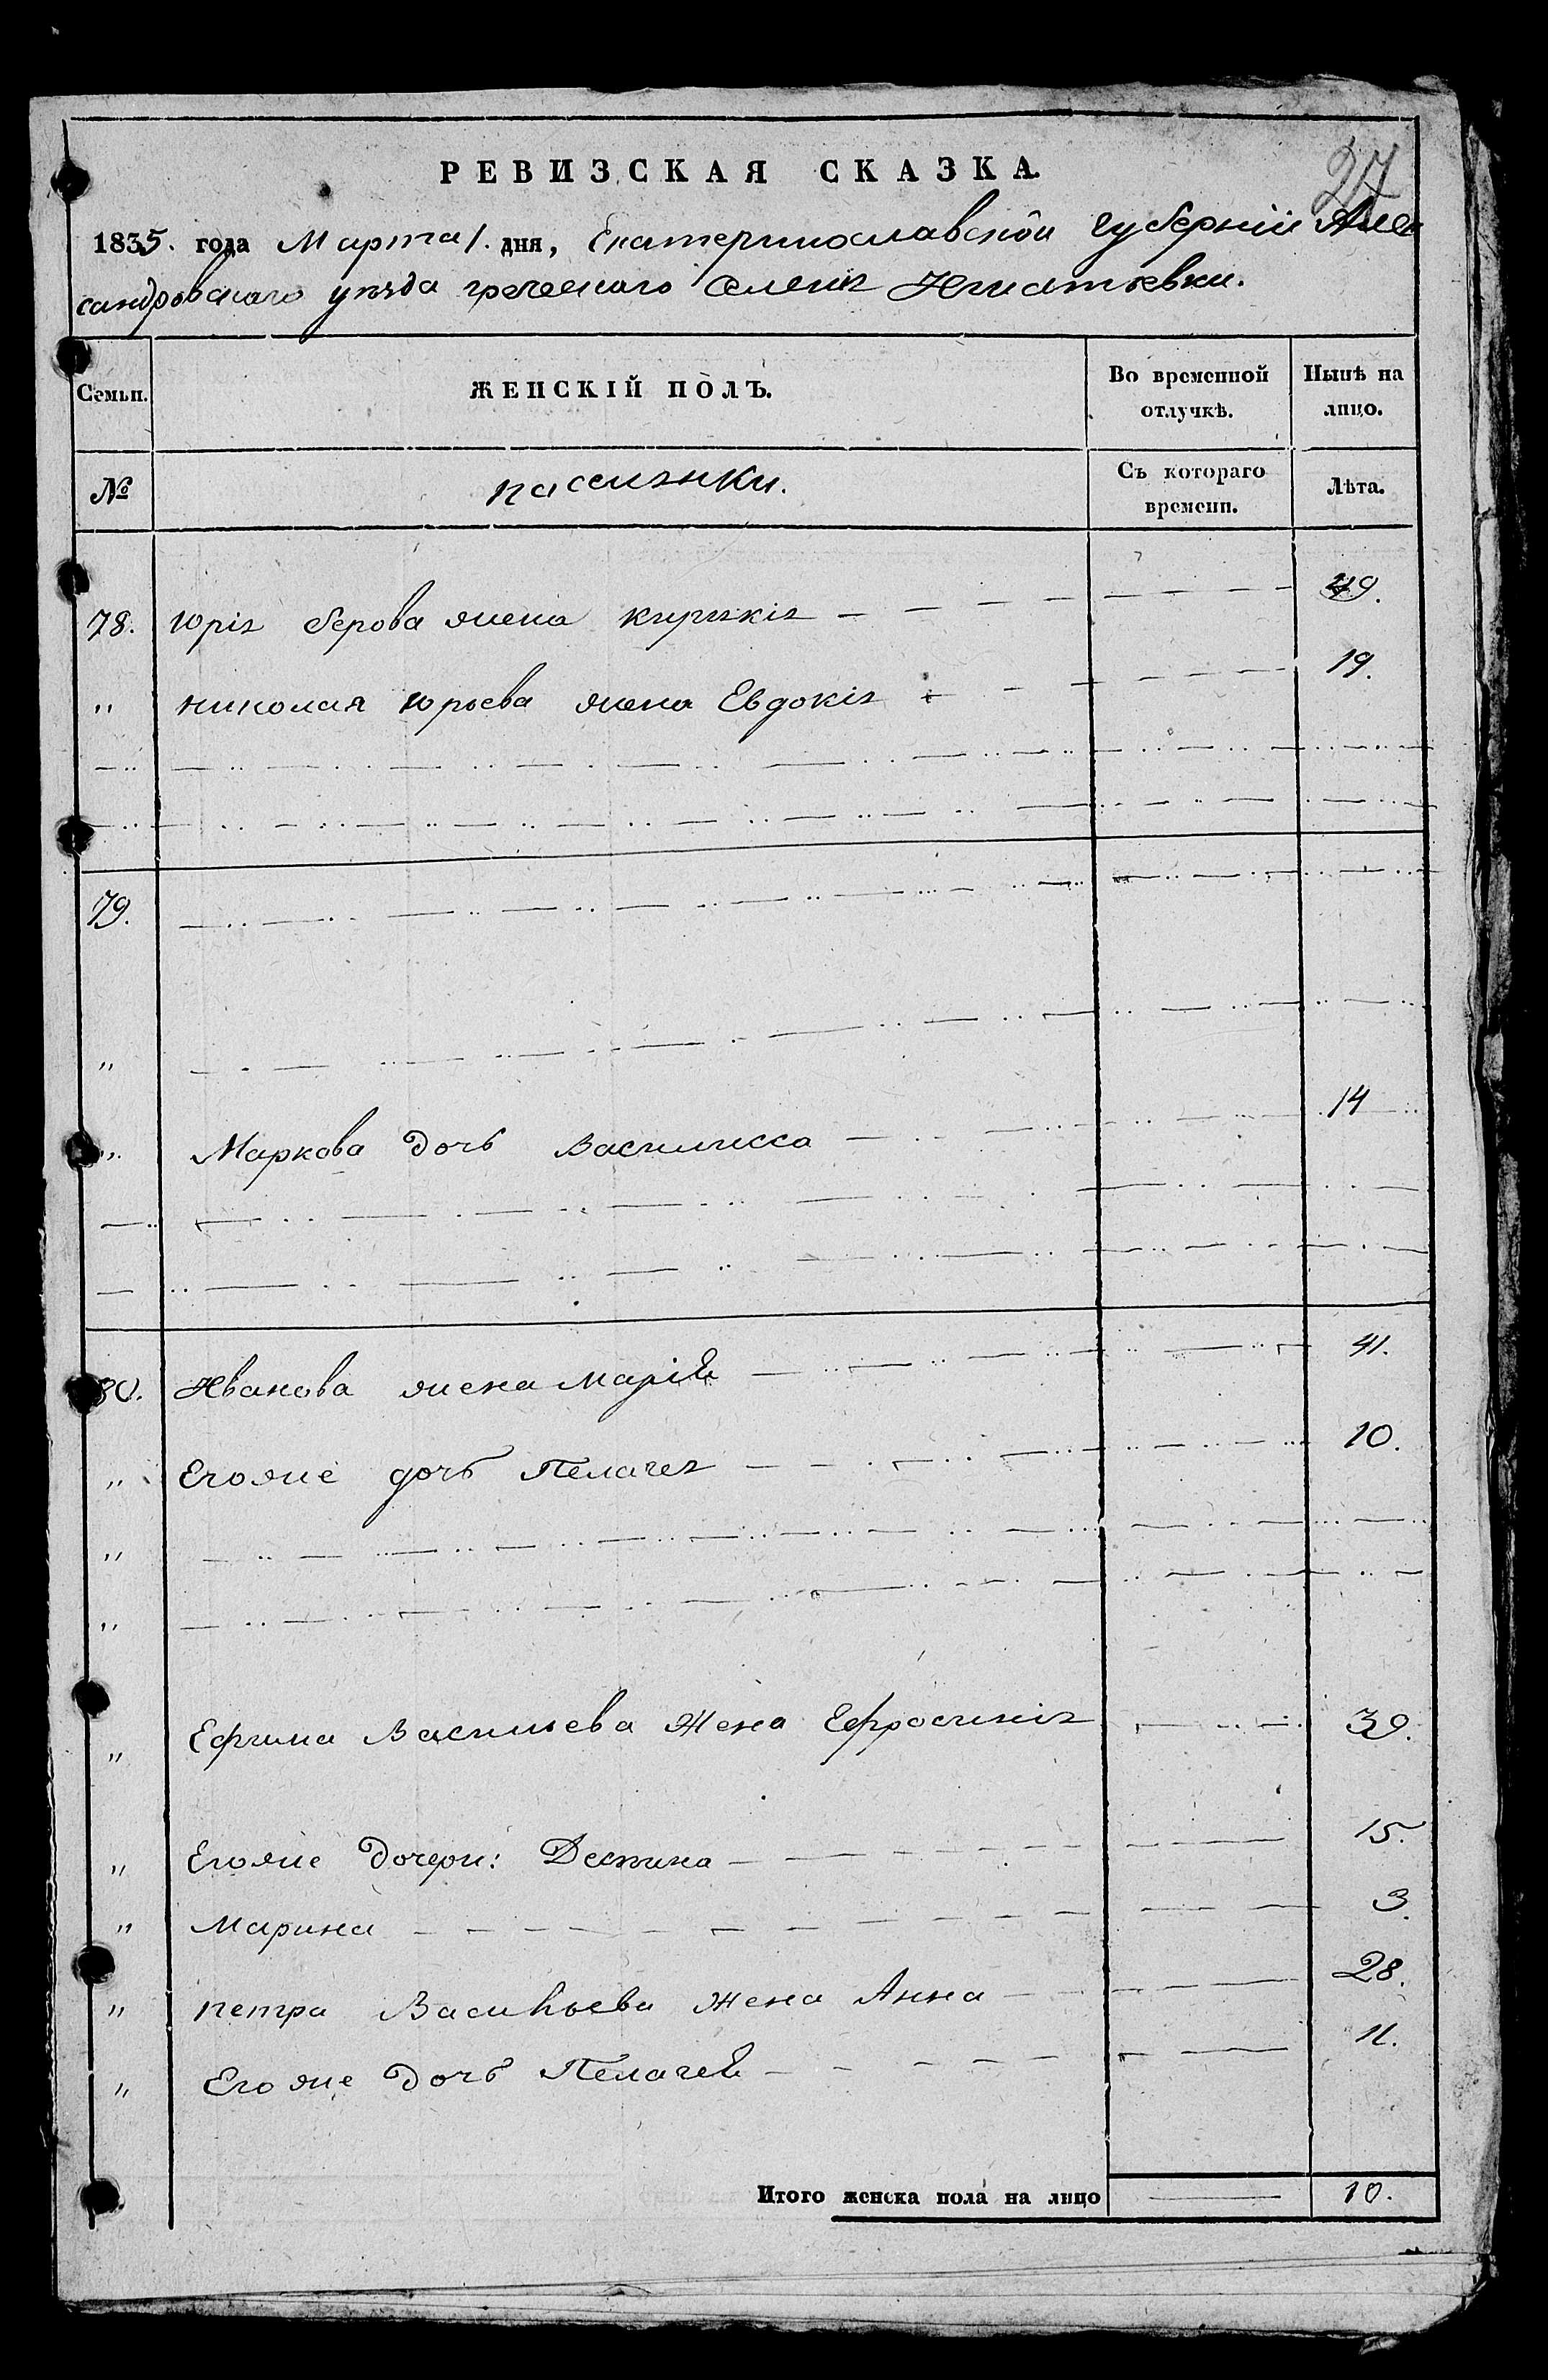 27
РЕВИЗСКАЯ СКАЗКА.
1835. года Марта 1. дня, Екатеринославской губерніи Алек
сандровскаго уезда греческаго Селенія Игнатьевки.
Семьи. ЖЕНСКІЙ ПОЛЪ. Во временной отлучкѣ. Нынѣ на лицо.
№ Съ котораго времени. Лѣта.
78. Юрія жена Киріакія 49.
" николая юрьева жена Евдокія 19.
79.
"
" Маркова дочь Василисса 14
80. Иванова жена Марія 41.
" Егоже дочь Пелагея 10.
"
"
" Ефима Васильева Жена Ефросинія 39.
" Егоже дочери: Деспина 15.
" Марина 3.
" петра Васильева жена Анна 28.
" Егоже дочь Пелагея 11.
Итого женска пола на лицо 10.